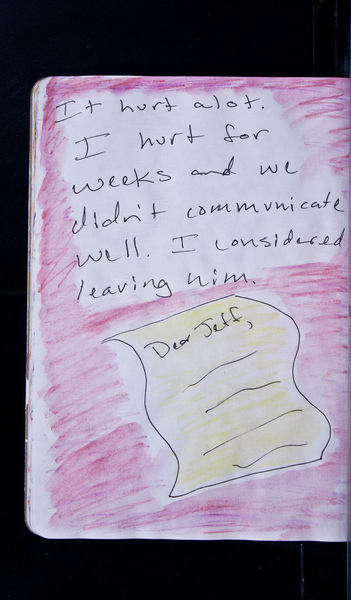 It hurt alot.
I hurt for
weeks and we
didn't communicate
well. I considered
leaving him.
Dear Jeff,